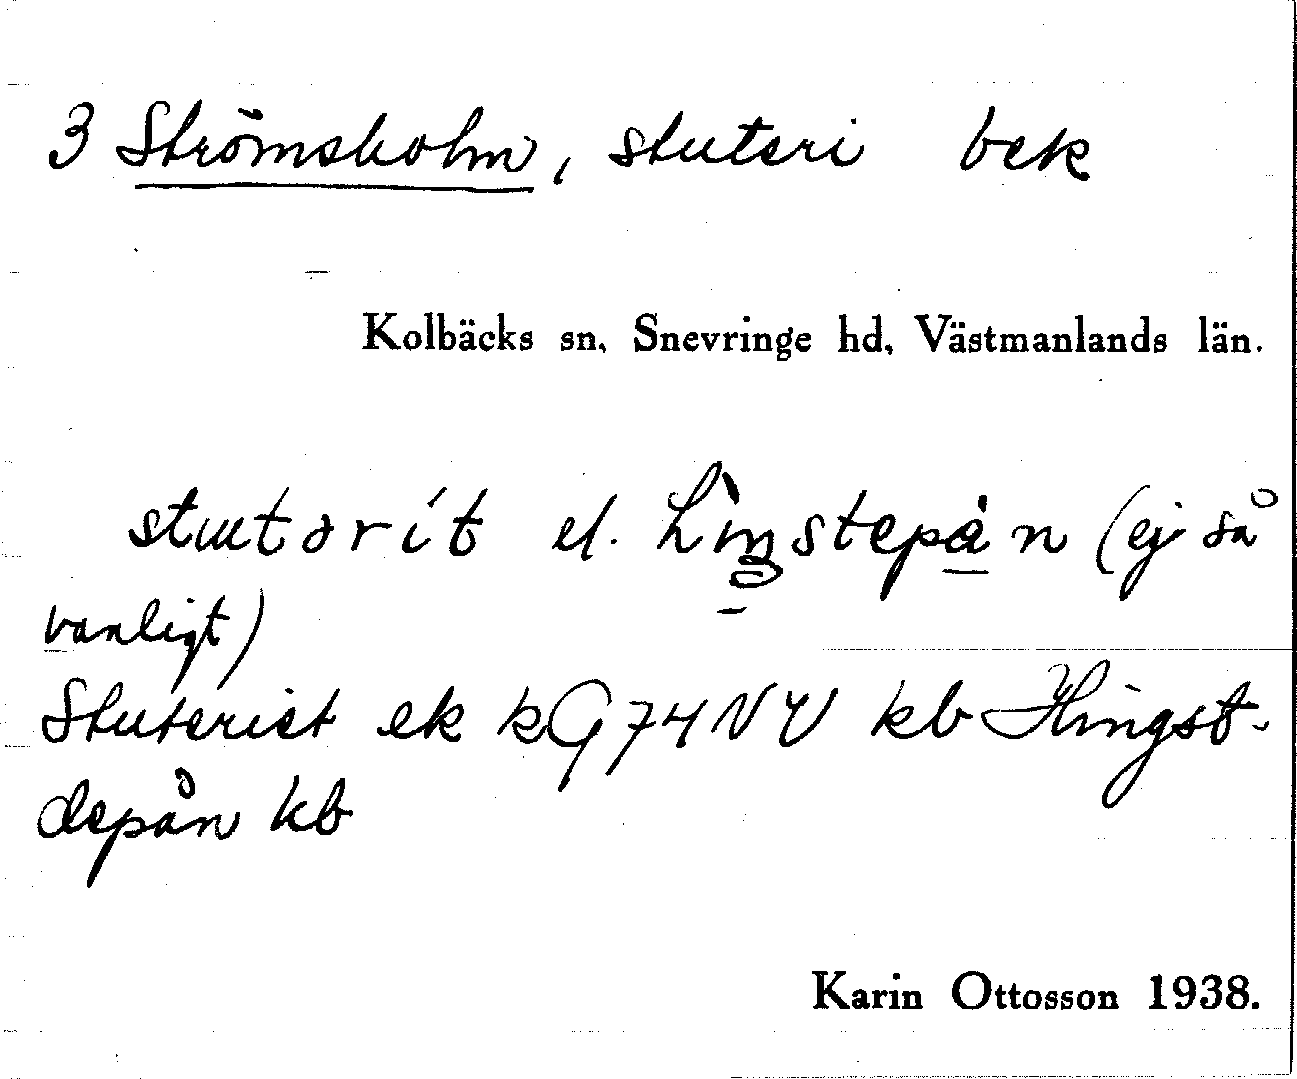 3 Strömsholm, stuteri bek
Kolbäcks sn, Snevringe hd, Västmanlands län.
stutərít el. hìŋstepå̀n (ej så
vanligt)
Stuteriet ek kG74NV kb Hingst-
depån kb
Karin Ottosson 1938.